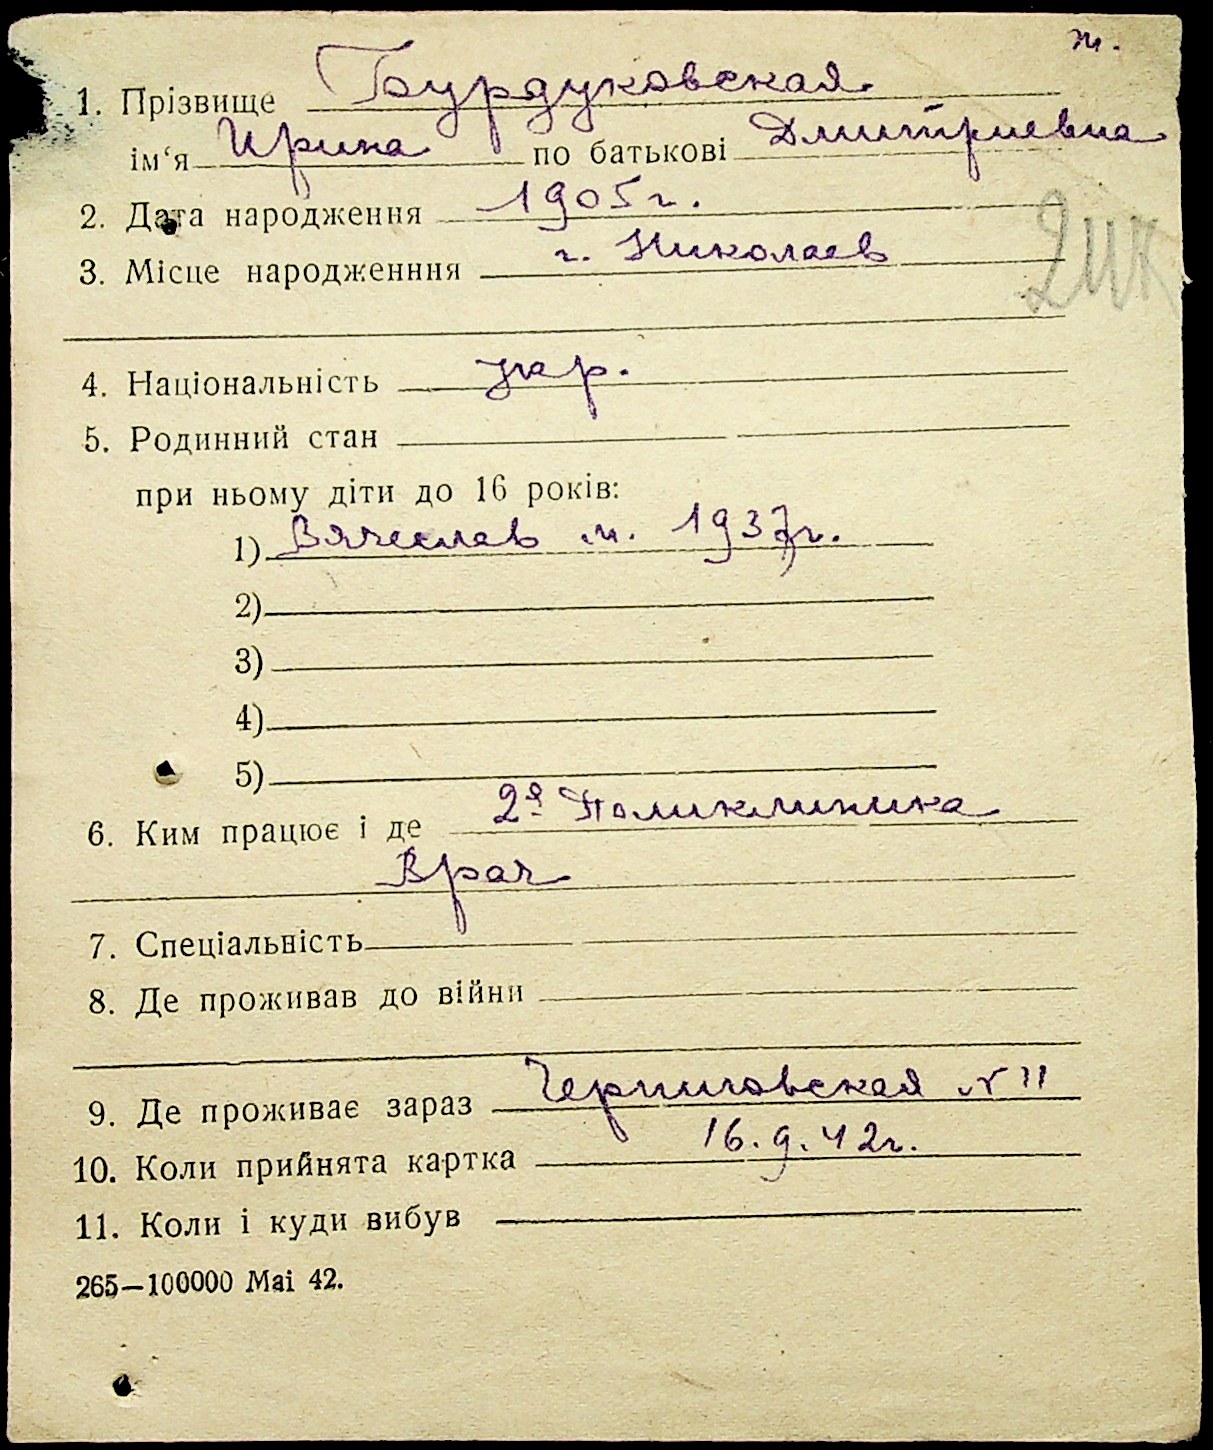 ж.
1. Прізвище Бурдуковская
ім‘я Ирина по батькові Дмитриевна
2. Дата народження 1905 г.
3. Місце народженння г. Николаев
4. Національність укр.
5. Родинний стан
при ньому діти до 16 років:
1) Вячеслав м. 1937 г.
2)
3)
4)
5)
6. Ким працює і де 2я Поликлиника
Врач
7. Спеціальність
8. Де проживав до війни
9. Де проживає зараз Черниговская № 11
10. Коли прийнята картка 16.9.42 г.
11. Коли і куди вибув
265—100000 Mai 42.